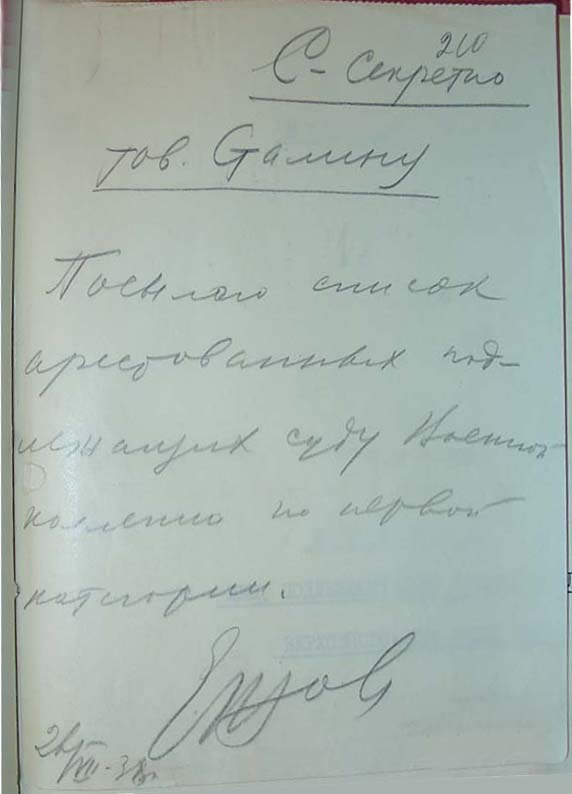 210
С-секретно
тов. Сталину
Посылаю список
арестованных под-
лежащих суду Военной
коллегии по первой
категории.
Ежов
26/VII-38г.